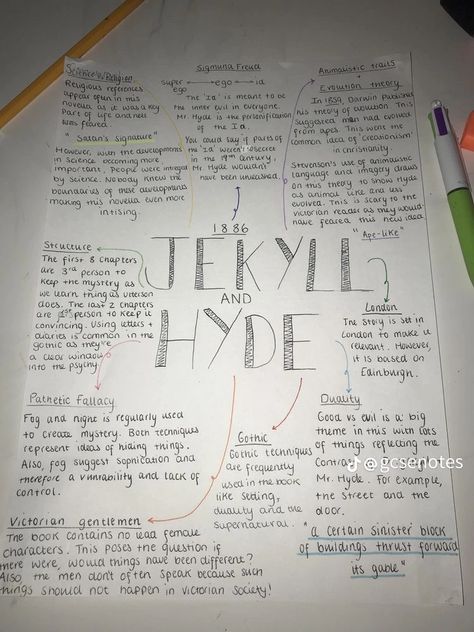 Science vs Religion
Religious references
appear often in this
novella as it was a key
part of life and hell
was feared.
"Satan's signature"
However, with the developments
in science becoming more
important. People were intrigued
by science. Nobody knew the
boundaries of these developments
making this novella even more
intising.
Sigmund Freud
super ego ↔ ego ↔ id
The 'Id' is meant to be
the inner evil in everyone.
Mr. Hyde is the personification
of the Id.
You could say if parts of
the 'Id' weren't discreet
in the 19th century,
Mr. Hyde wouldn't
have been unleashed.
Animalistic traits
+
Evolution theory
In 1859, Darwin published
his theory of evolution. This
suggested man had evolved
from apes. This went the
common idea of creationism
in christianity.
Stevenson's use of animalistic
language and imagery draws
on this theory to show Hyde
as animal like and less
evolved. This is scary to the
victorian reader as they would
have feared this new idea.
"Ape-like"
1886
JEKYLL
AND
HYDE
Structure
The first 8 chapters
are 3rd person to
keep the mystery as
we learn things as Utterson
does. The last 2 chapters
are 1st person to keep it
convincing. Using letters +
diaries is common in the
gothic as they're
a clear window
into the psyche.
London
The story is set in
London to make it
relevant. However,
it is based on
Edinburgh.
Pathetic Fallacy
Fog and night is regularly used
to create mystery. Both techniques
represent ideas of hiding things.
Also, fog suggest
therefore a and lack of
control.
Gothic
Gothic techniques
are frequently
used in the book
like setting,
duality and the
supernatural.
Duality
Good vs evil is a big
theme in this with lots
of things reflecting the
contrast
Mr. Hyde. For example,
the street and the
door.
"a certain sinister block
of buildings thrust forward
its gable"
@gcsenotes
Victorian gentlemen
The book contains no lead female
characters. This poses the question if
there were, would things have been different?
Also, the men don't often speak because such
things should not happen in victorian society!